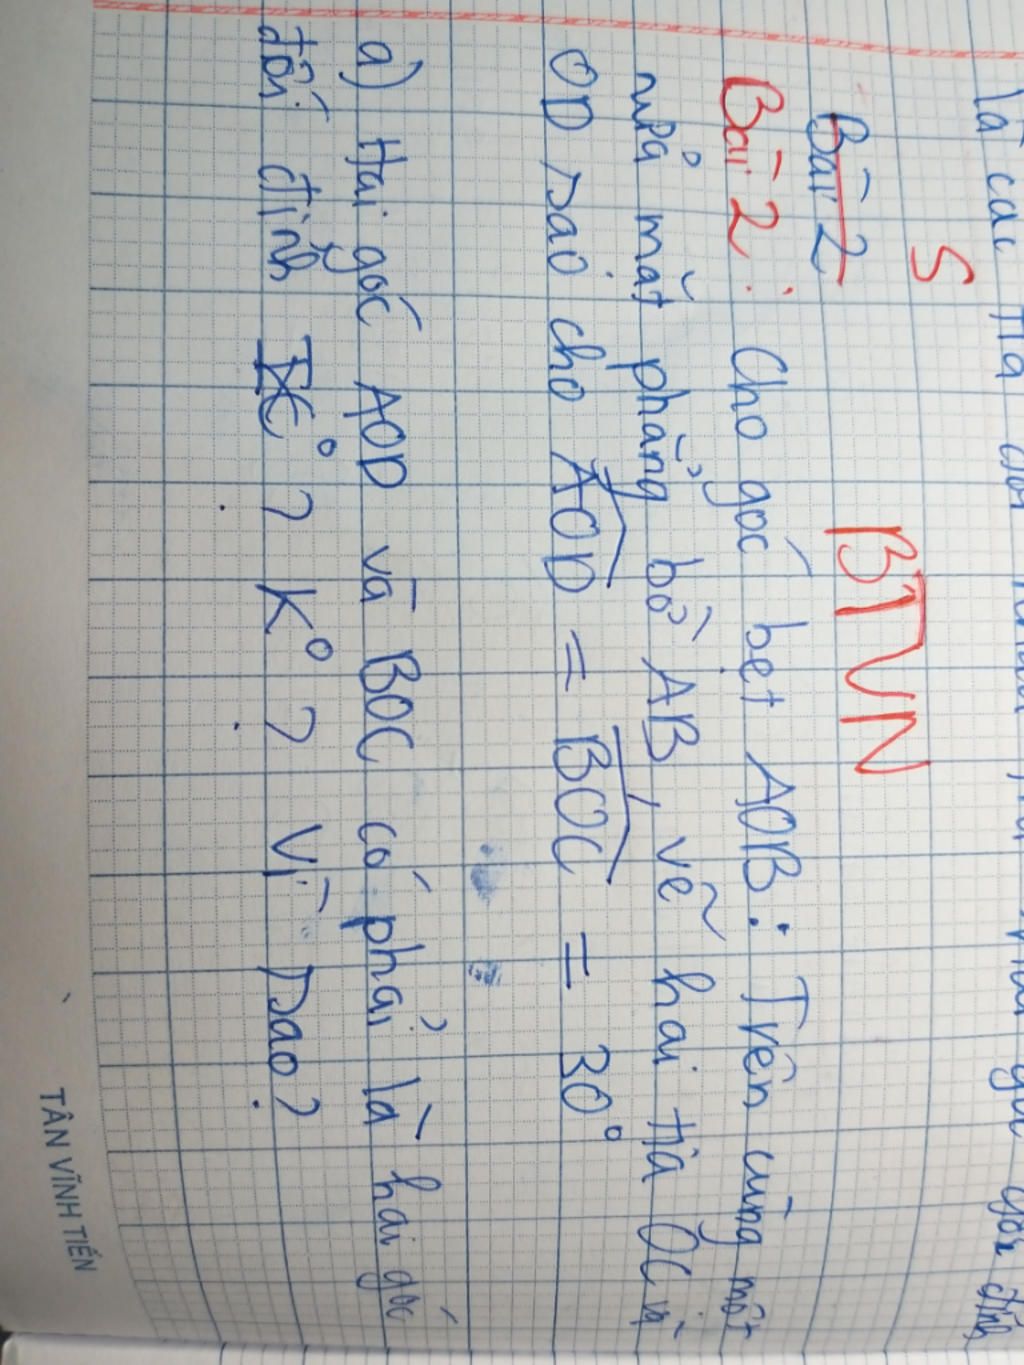 là các
S
BTVN
Bài 2
Bài 2: Cho góc bẹt AOB: Trên cùng một
nửa mặt phẳng bờ AB, vẽ hai tia OC và
OD sao cho AOD = BOC = 30°
a) Hai góc AOD và BOC có phải là hai góc
đối đỉnh K° ? K° ? Vì sao?
TÂN VĨNH TIẾN